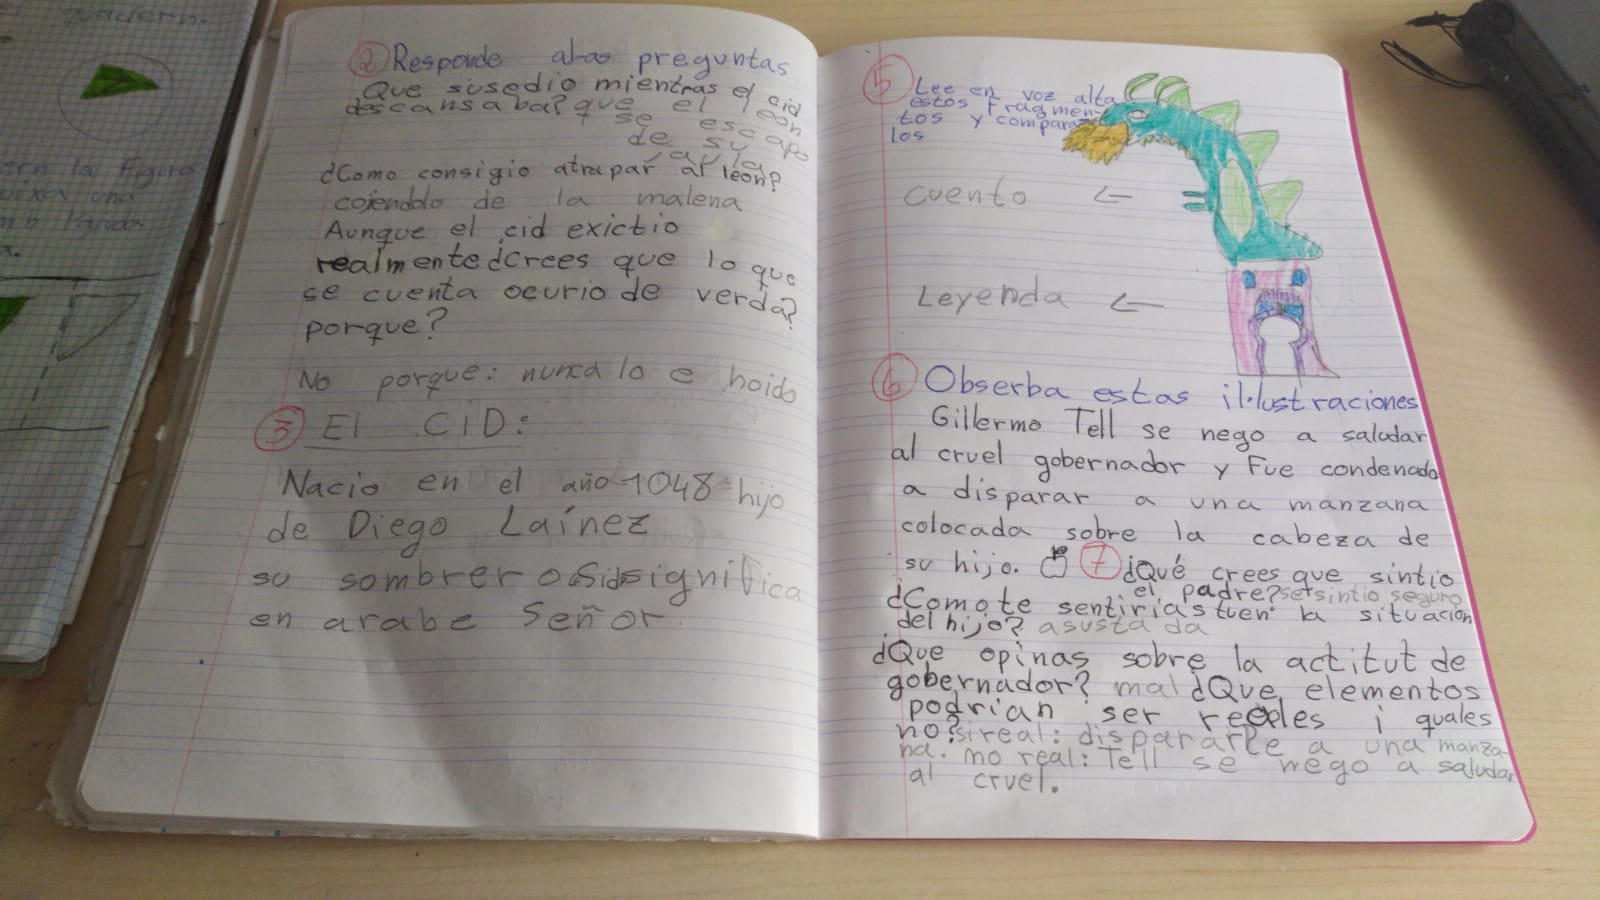 quadern.
② Responde alas preguntas
Que susedio mientras el cid
descansaba? que el leon
se escapo
de su
jaula
¿Como consigio atrapar al leon?
cojendolo de la malena
Aunque el cid exictio
realmente ¿crees que lo que
se cuenta ocurio de verda?
porque?
No porque: nunca lo e hoido
③ El CiD:
Nacio en el año 1048 hijo
de Diego Laínez
su sombrero Sid significa
en arabe Señor.
⑤ Lee en voz alta
estos fragmen-
tos y compara
los
cuento ←
Leyenda ←
⑥ Obserba estas il·lustraciones
Gillermo Tell se nego a saludar
al cruel gobernador y fue condenado
a disparar a una manzana
colocada sobre la cabeza de
su hijo. ⑦ ¿Qué crees que sintio
el padre? se sintio seguro
¿Como te sentirias tu en la situacion
del hijo? asustada
¿Que opinas sobre la actitut de
gobernador? mal ¿Que elementos
podrian ser reeles i quales
no? si real: dispararle a una manza-
na. no real: Tell se nego a saludar
al cruel.